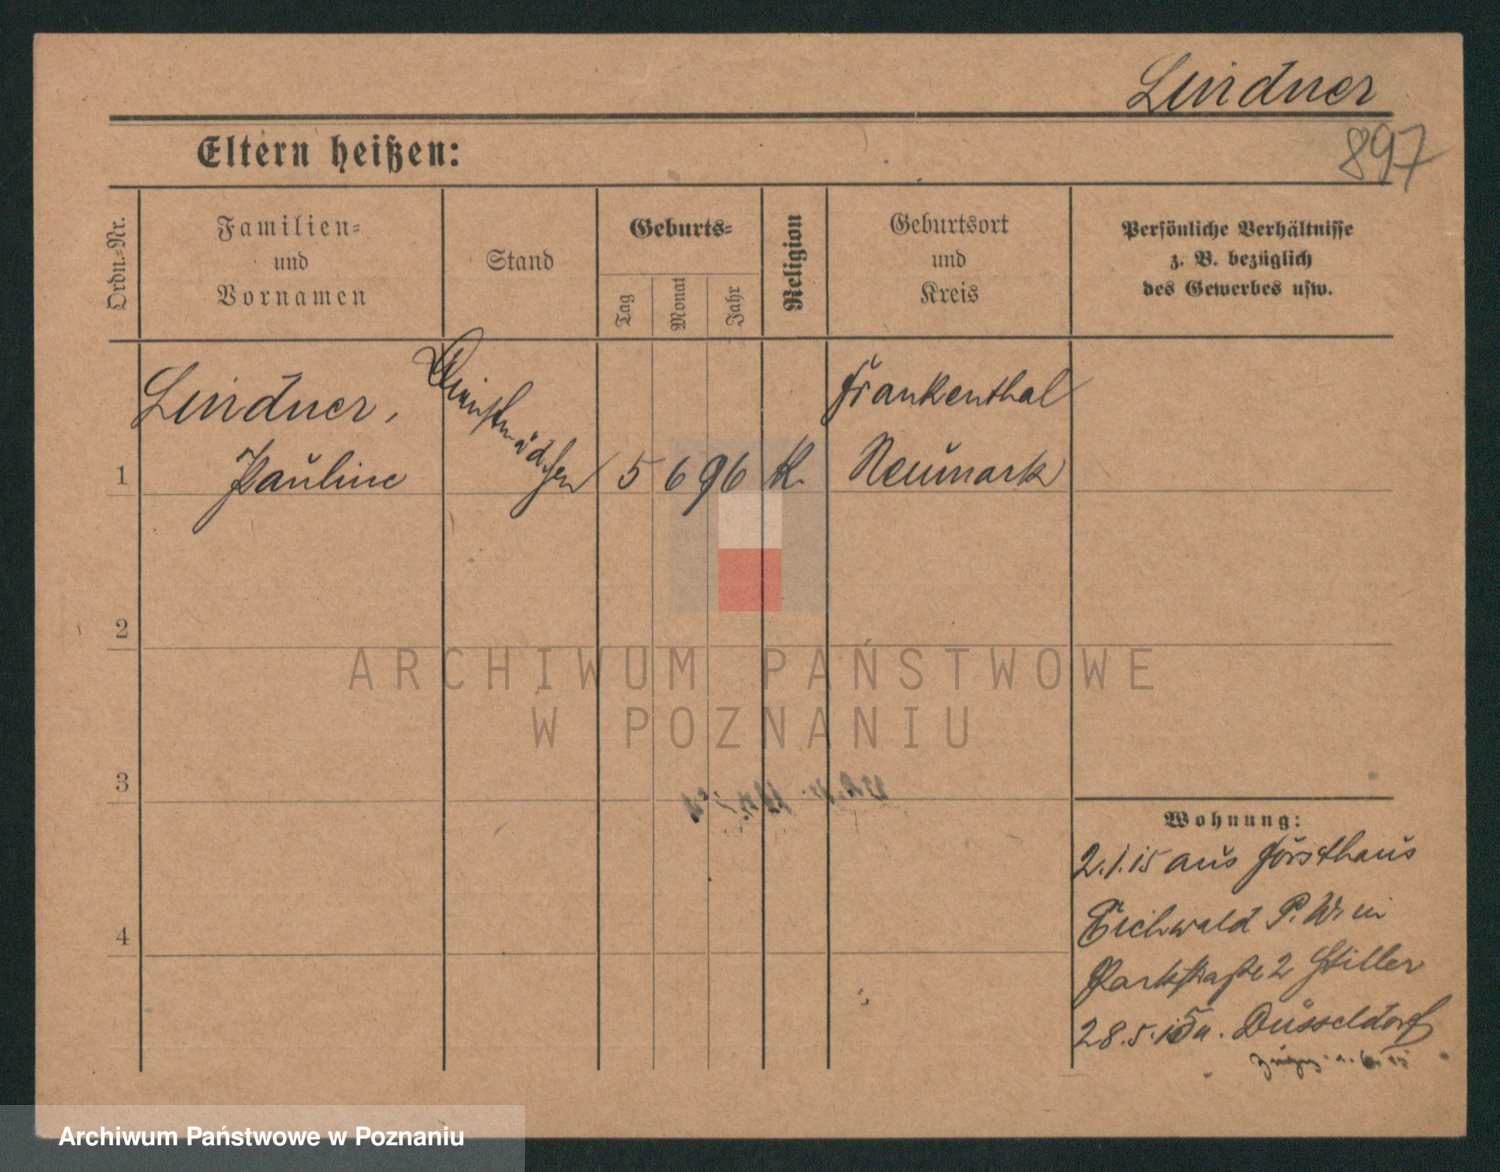 Lindner
897
Eltern heißen:
Ordn.-Nr.
Familien-
und
Vornamen
Stand
Geburts-
Tag
Monat
Jahr
Religion
Geburtsort
und
Kreis
Persönliche Verhältnisse
z. B. bezüglich
des Gewerbes usw.
1
Lindner,
Pauline
Dienstmädchen
5 6 96 K.
Frankenthal
Neumark
2
ARCHIWUM PAŃSTWOWE
W POZNANIU
3
4
Wohnung:
2.1.15 aus Forsthaus
Eichwald P. W. in
Parkstraße 2 Stiller
28.5.15 n. Düsseldorf
Archiwum Państwowe w Poznaniu